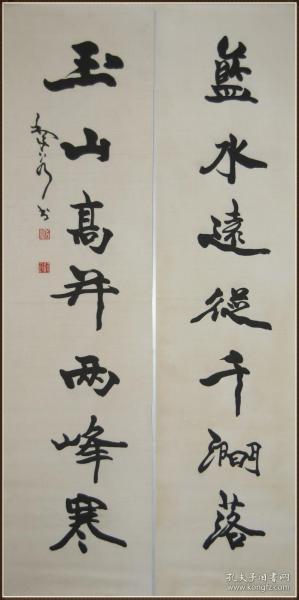 藍水遠從千澗落
玉山高并兩峰寒
孔夫子旧书网
www.kongfz.com